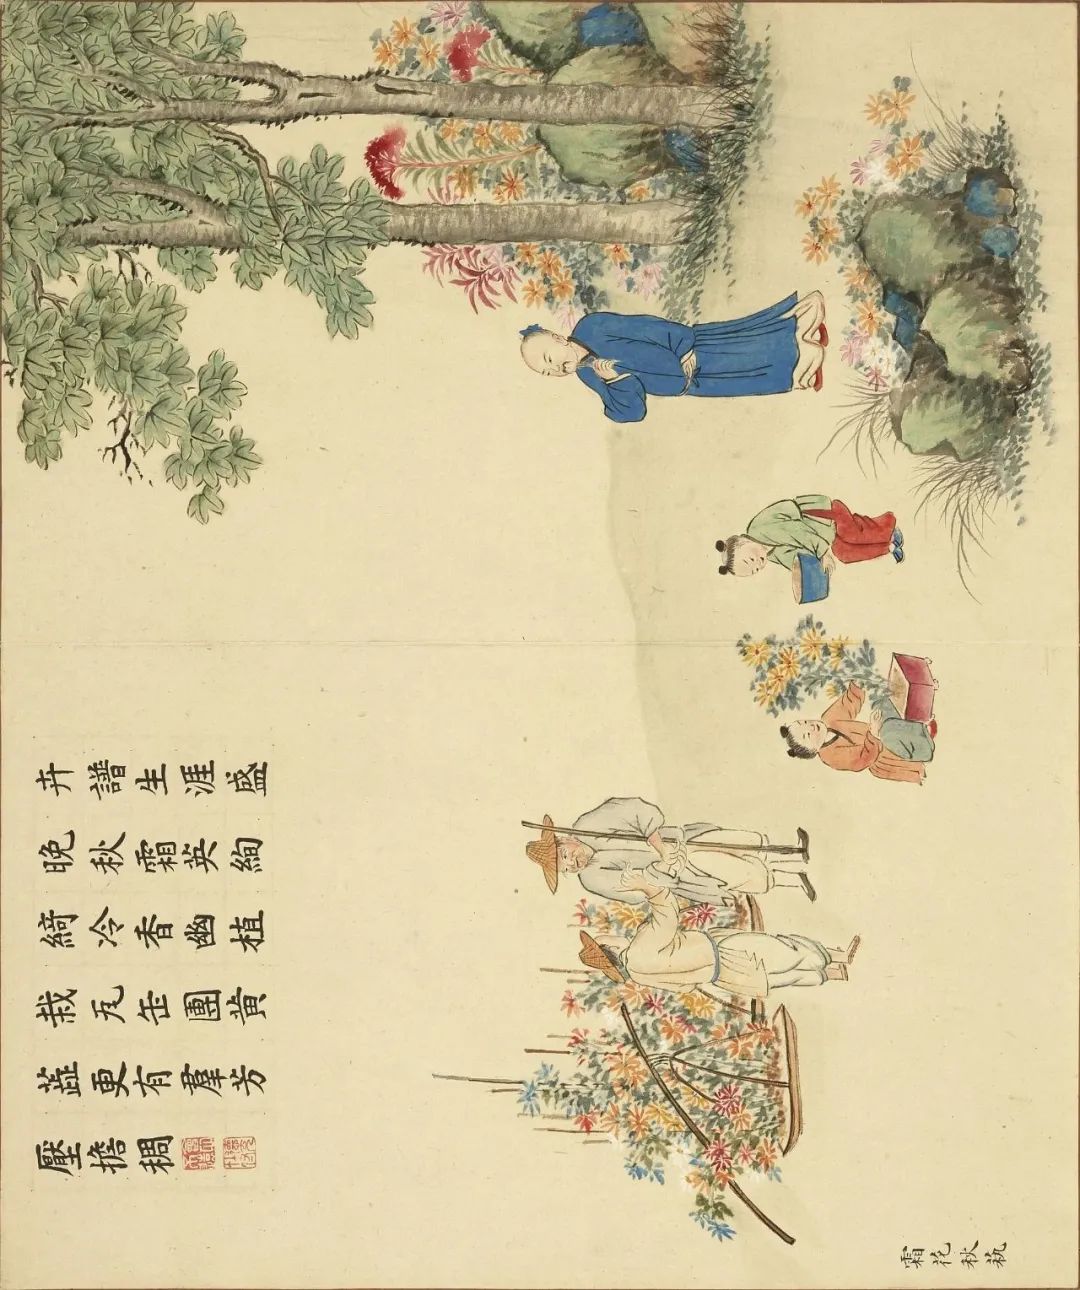 卉譜生涯盛
晚秋霜英絢
綺冷香幽植
栽瓦缶團黃
蕋更有羣芳
壓擔稠
霜花秋蓺